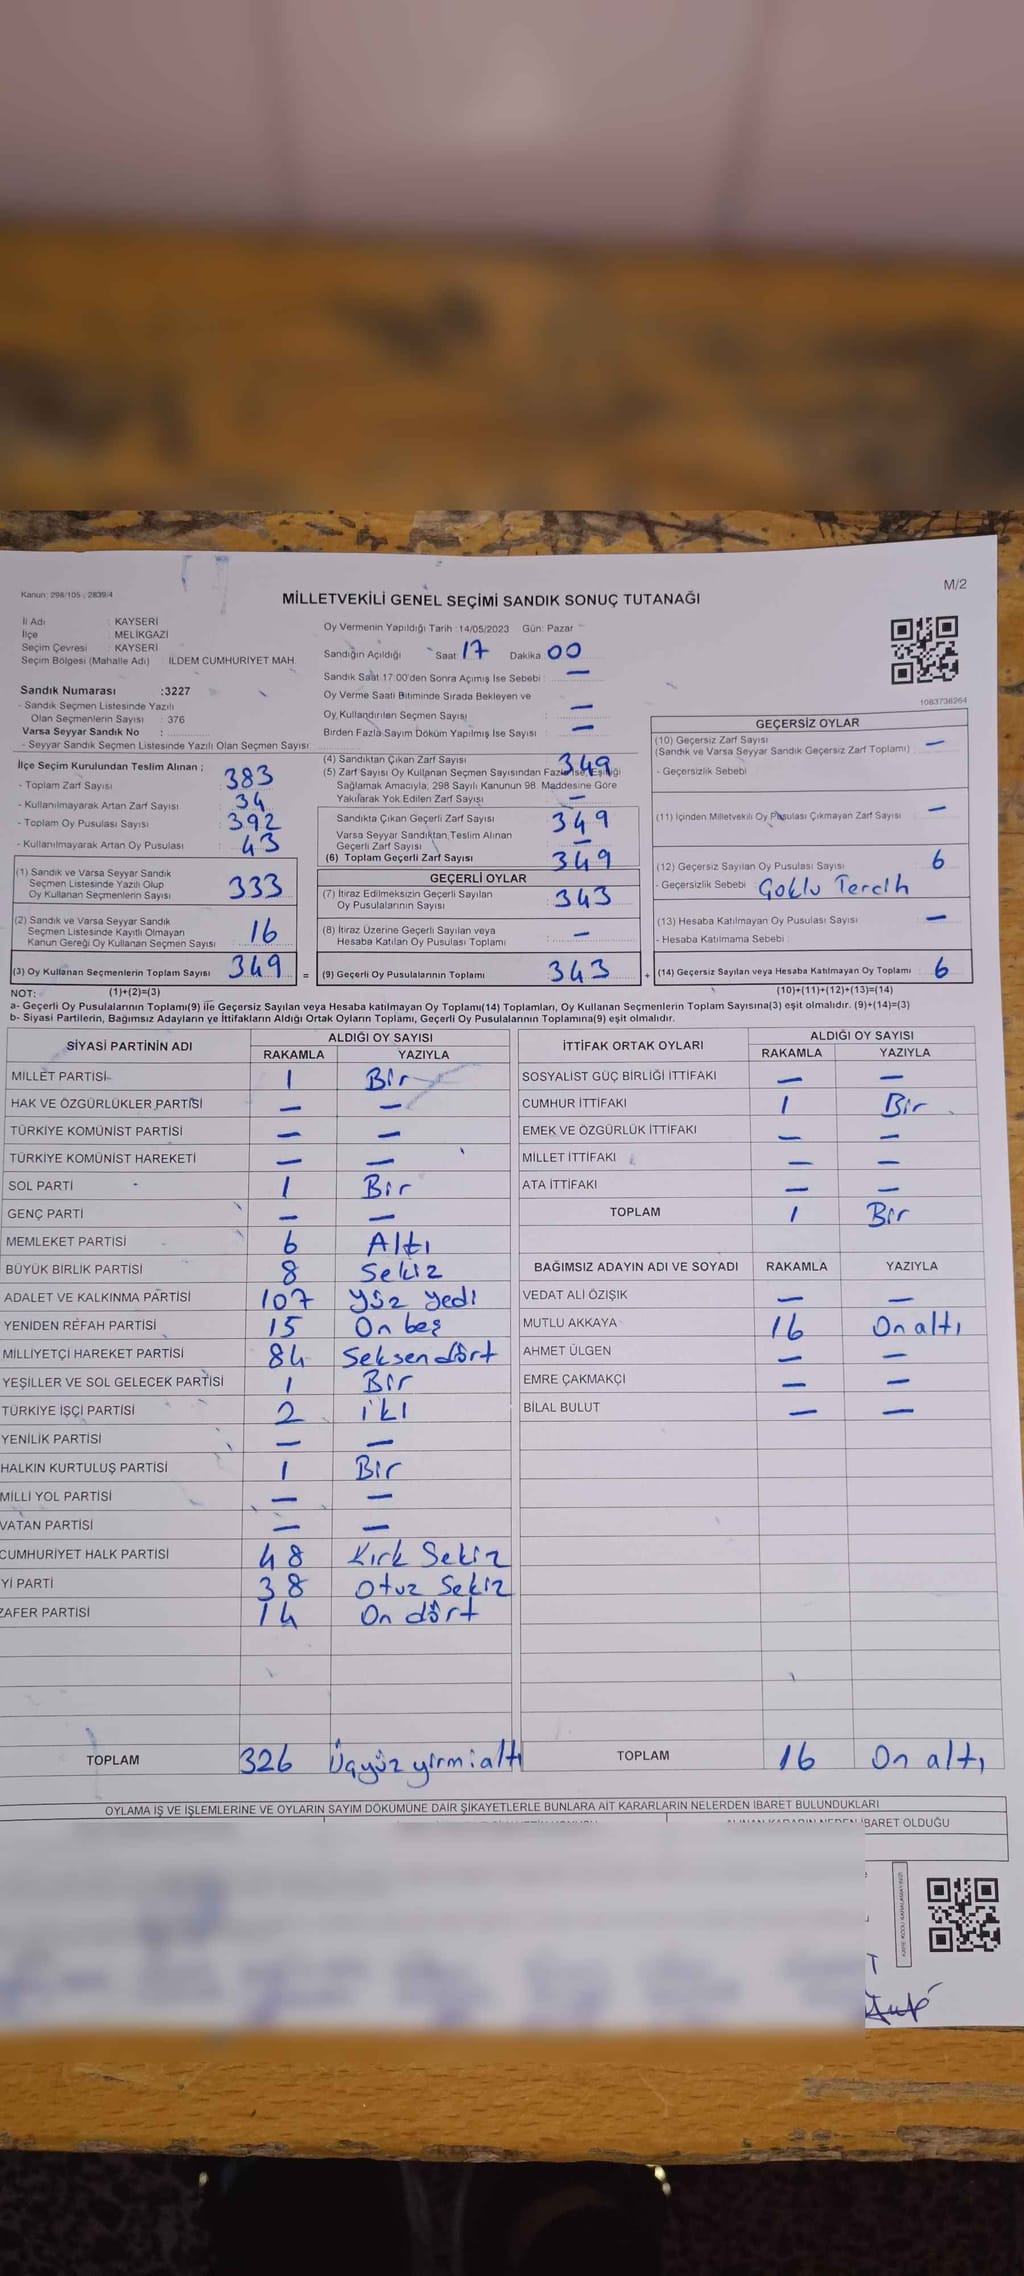 Kanun: 298/105 ; 2839/4
M/2
MİLLETVEKİLİ GENEL SEÇİMİ SANDIK SONUÇ TUTANAĞI
İl Adı : KAYSERİ
İlçe : MELİKGAZİ
Seçim Çevresi : KAYSERİ
Seçim Bölgesi (Mahalle Adı) : İLDEM CUMHURİYET MAH.
Sandık Numarası :3227
- Sandık Seçmen Listesinde Yazılı
Olan Seçmenlerin Sayısı : 376
Varsa Seyyar Sandık No :
- Seyyar Sandık Seçmen Listesinde Yazılı Olan Seçmen Sayısı:
Oy Vermenin Yapıldığı Tarih :14/05/2023 Gün: Pazar
Sandığın Açıldığı Saat: 17 Dakika: 00
Sandık Saat 17:00'den Sonra Açımış İse Sebebi : —
Oy Verme Saati Bitiminde Sırada Bekleyen ve
Oy Kullandırılan Seçmen Sayısı : —
Birden Fazla Sayım Döküm Yapılmış İse Sayısı : —
1083736264
İlçe Seçim Kurulundan Teslim Alınan ;
- Toplam Zarf Sayısı : 383
- Kullanılmayarak Artan Zarf Sayısı : 34
- Toplam Oy Pusulası Sayısı : 392
- Kullanılmayarak Artan Oy Pusulası : 43
(1) Sandık ve Varsa Seyyar Sandık
Seçmen Listesinde Yazılı Olup
Oy Kullanan Seçmenlerin Sayısı : 333
(2) Sandık ve Varsa Seyyar Sandık
Seçmen Listesinde Kayıtlı Olmayan
Kanun Gereği Oy Kullanan Seçmen Sayısı : 16
(3) Oy Kullanan Seçmenlerin Toplam Sayısı : 349
(4) Sandıktan Çıkan Zarf Sayısı : 349
(5) Zarf Sayısı Oy Kullanan Seçmen Sayısından Fazla İse, Eşitliği
Sağlamak Amacıyla, 298 Sayılı Kanunun 98. Maddesine Göre
Yakılarak Yok Edilen Zarf Sayısı : —
Sandıkta Çıkan Geçerli Zarf Sayısı : 349
Varsa Seyyar Sandıktan Teslim Alınan
Geçerli Zarf Sayısı : —
(6) Toplam Geçerli Zarf Sayısı : 349
GEÇERLİ OYLAR
(7) İtiraz Edilmeksizin Geçerli Sayılan
Oy Pusulalarının Sayısı : 343
(8) İtiraz Üzerine Geçerli Sayılan veya
Hesaba Katılan Oy Pusulası Toplamı : —
= (9) Geçerli Oy Pusulalarının Toplamı : 343
GEÇERSİZ OYLAR
(10) Geçersiz Zarf Sayısı
(Sandık ve Varsa Seyyar Sandık Geçersiz Zarf Toplamı) : —
- Geçersizlik Sebebi :
(11) İçinden Milletvekili Oy Pusulası Çıkmayan Zarf Sayısı : —
(12) Geçersiz Sayılan Oy Pusulası Sayısı : 6
- Geçersizlik Sebebi : Çoklu Tercih
(13) Hesaba Katılmayan Oy Pusulası Sayısı : —
- Hesaba Katılmama Sebebi :
+ (14) Geçersiz Sayılan veya Hesaba Katılmayan Oy Toplamı : 6
NOT: (1)+(2)=(3)
(10)+(11)+(12)+(13)=(14)
a- Geçerli Oy Pusulalarının Toplamı(9) ile Geçersiz Sayılan veya Hesaba katılmayan Oy Toplamı(14) Toplamları, Oy Kullanan Seçmenlerin Toplam Sayısına(3) eşit olmalıdır. (9)+(14)=(3)
b- Siyasi Partilerin, Bağımsız Adayların ve İttifakların Aldığı Ortak Oyların Toplamı, Geçerli Oy Pusulalarının Toplamına(9) eşit olmalıdır.
SİYASİ PARTİNİN ADI ALDIĞI OY SAYISI
RAKAMLA YAZIYLA
MİLLET PARTİSİ 1 Bir
HAK VE ÖZGÜRLÜKLER PARTİSİ — —
TÜRKİYE KOMÜNİST PARTİSİ — —
TÜRKİYE KOMÜNİST HAREKETİ — —
SOL PARTİ 1 Bir
GENÇ PARTİ — —
MEMLEKET PARTİSİ 6 Altı
BÜYÜK BİRLİK PARTİSİ 8 Sekiz
ADALET VE KALKINMA PARTİSİ 107 Yüz Yedi
YENİDEN REFAH PARTİSİ 15 On beş
MİLLİYETÇİ HAREKET PARTİSİ 84 Seksen dört
YEŞİLLER VE SOL GELECEK PARTİSİ 1 Bir
TÜRKİYE İŞÇİ PARTİSİ 2 iki
YENİLİK PARTİSİ — —
HALKIN KURTULUŞ PARTİSİ 1 Bir
MİLLİ YOL PARTİSİ — —
VATAN PARTİSİ — —
CUMHURİYET HALK PARTİSİ 48 Kırk Sekiz
Yİ PARTİ 38 Otuz Sekiz
ZAFER PARTİSİ 14 On dört
TOPLAM 326 Üçyüz yirmi altı
İTTİFAK ORTAK OYLARI ALDIĞI OY SAYISI
RAKAMLA YAZIYLA
SOSYALİST GÜÇ BİRLİĞİ İTTİFAKI — —
CUMHUR İTTİFAKI 1 Bir
EMEK VE ÖZGÜRLÜK İTTİFAKI — —
MİLLET İTTİFAKI — —
ATA İTTİFAKI — —
TOPLAM 1 Bir
BAĞIMSIZ ADAYIN ADI VE SOYADI RAKAMLA YAZIYLA
VEDAT ALİ ÖZIŞIK — —
MUTLU AKKAYA 16 On altı
AHMET ÜLGEN — —
EMRE ÇAKMAKÇI — —
BİLAL BULUT — —
TOPLAM 16 On altı
OYLAMA İŞ VE İŞLEMLERİNE VE OYLARIN SAYIM DÖKÜMÜNE DAİR ŞİKAYETLERLE BUNLARA AİT KARARLARIN NELERDEN İBARET BULUNDUKLARI
İBARET OLDUĞU